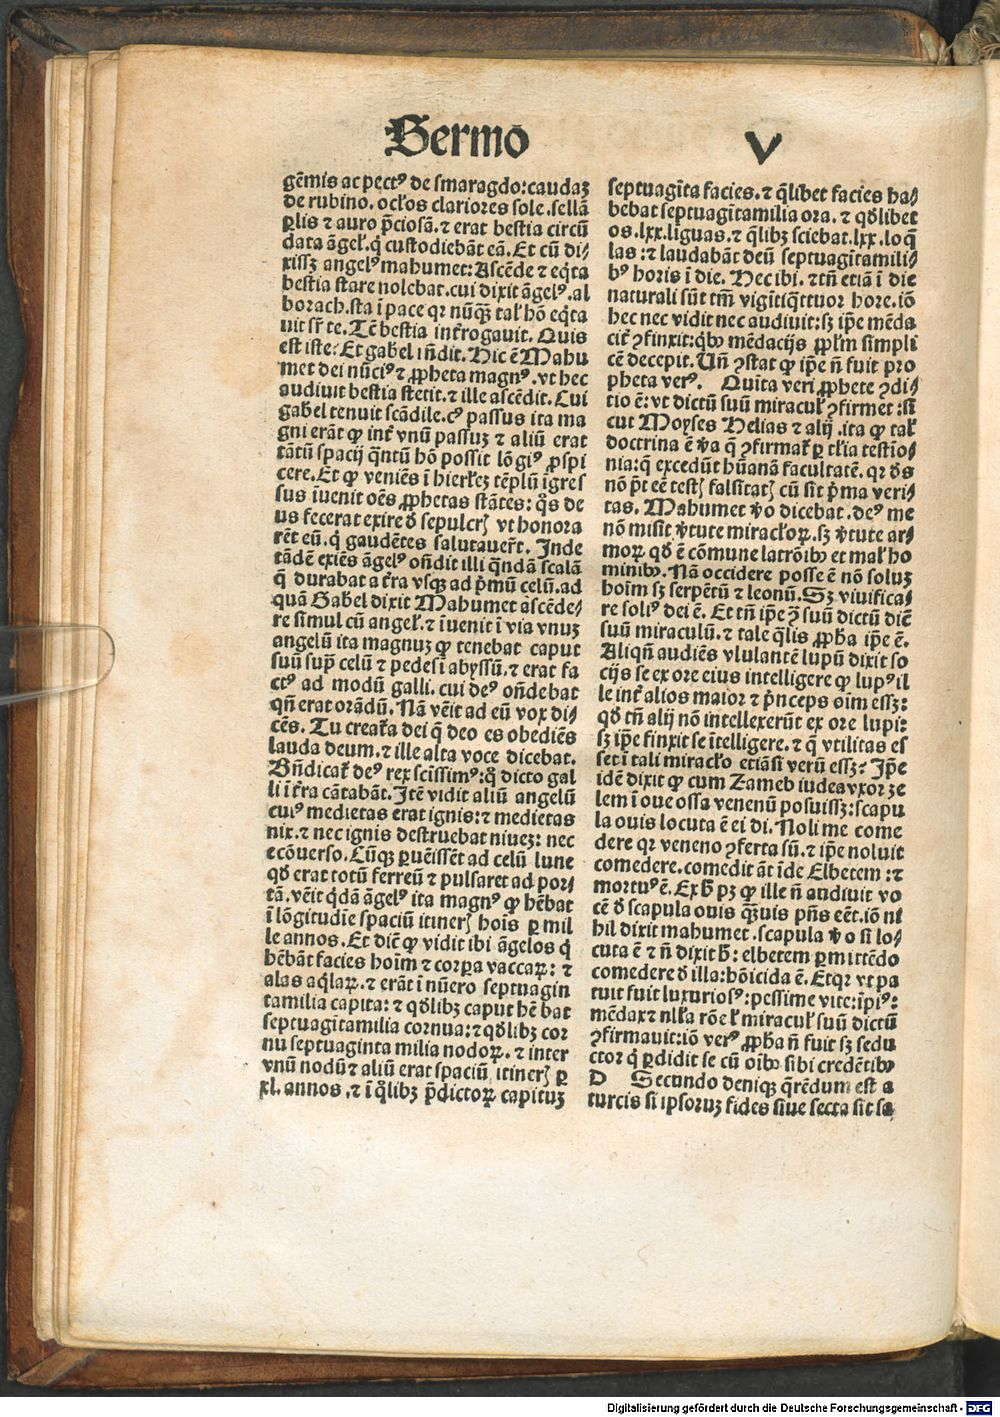 Sermo V
gēmis ac pectꝰ de smaragdo: caudaz
de rubino. oc̄los clariores sole. sellā
ꝑlis ⁊ auro p̄ciosā. ⁊ erat bestia circū
data āgel̄. q̇ custodiebāt eā. Et cū di/
xissꝫ angelꝰ mahumet: Ascēde ⁊ eq̇ta
bestia stare nolebat. cui dixit āgelꝰ. al
borach. sta ī pace qꝛ nūq̄ꝫ tal̄ hō eq̇ta
uit sr̄ te. Tē bestia int̄rogauit. Quis
est iste? Et gab̄el īn̄dit. Hic ē Mahu
met dei nūciꝰ ⁊ ꝓpheta magnꝰ. vt hec
audiuit bestia stetit. ⁊ ille ascēdit. Cui
gab̄el tenuit scādile. cꝰ passus ita ma
gni erāt ꝙ int̄ vnū passuꝫ ⁊ aliū erat
tātū spacij q̄ntū hō possit lōgiꝰ ꝓspi
cere. Et ꝙ veniēs ī hierl̄ez tēplū īgres
sus iuenit oēs ꝓphetas stātes: q̊s de
us fecerat exire ð sepulcrꝭ vt honora
rēt eū. q̇ gaudētes salutauer̄t. Inde
tādē exiēs āgelꝰ on̄dit illi q̄ndā scalā
q̄ durabat a t̄ra vsqꝫ ad p̄mū celū. ad
quā Gab̄el dixit Mahumet ascēde/
re simul cū angel̄. ⁊ iuenit ī via vnuꝫ
angelū ita magnuꝫ ꝙ tenebat caput
suū suꝑ celū ⁊ pedes ī abyssū. ⁊ erat fa
ctꝰ ad modū galli. cui deꝰ on̄debat
qn̄ erat orādū. Nā vēit ad eū vox di/
cēs. Tu creat̄a dei q̄ deo es obediēs
lauda deum. ⁊ ille alta voce dicebat.
Bn̄dicat̄ deꝰ rex scīssimꝰ: q̊ dicto gal
li ī t̄ra cātabāt. Itē vidit aliū angelū
cuiꝰ medietas erat ignis: ⁊ medietas
nix. ⁊ nec ignis destruebat niuez: nec
ecōuerso. Cūqꝫ ꝑuēissēt ad celū lune
qð erat totū ferreū ⁊ pulsaret ad por/
tā. vēit q̇dā āgelꝰ ita magnꝰ ꝙ hēbat
ī lōgitudīe spaciū itinerꝭ hoīs ꝑ mil
le annos. Et diē ꝙ vidit ibi āgelos q̇
hēbāt facies hoīm ⁊ corꝑa vaccaꝝ: ⁊
alas aq̇laꝝ. ⁊ erāt ī nūero septuagin
tamilia capita: ⁊ qðlibꝫ caput hē bat
septuagītamilia cornua: ⁊ qðlibꝫ cor
nu septuaginta milia nodoꝝ. ⁊ inter
vnū nodū ⁊ aliū erat spaciū itinerꝭ ꝑ
xl. annos. ⁊ ī q̊libꝫ p̄dictoꝝ capituꝫ
septuagīta facies. ⁊ q̄libet facies ha/
bebat septuagītamilia ora. ⁊ qðlibet
os. lxx. liguas. ⁊ q̄libꝫ sciebat. lxx. loq̄
las: ⁊ laudabāt deū septuagītamili/
bꝰ horis ī die. Hec ibi. ⁊ tn̄ etiā ī die
naturali sūt tm̄ vigītiq̄ttuor hore. iō
hec nec vidit nec audiuit: sꝫ ip̄e mēda
cit̄ ꝯfinxit: q̇bꝰ mēdacijs ꝓpl̄m simpli
cē decepit. Un̄ ꝯstat ꝙ ip̄e n̄ fuit pro
pheta verꝰ. Quīta veri ꝓphete ꝯdi/
tio ē: vt dictū suū miracul̄ ꝯfirmet: si
cut Moyses Helias ⁊ alij. ita ꝙ tal̄
doctrina ē v̄a q̄ ꝯfirmat̄ ꝑ tl̄ia testīo/
nia: q̄ excedūt hūanā facultatē. qꝛ ðs
nō pt̄ eē testꝭ falsitatꝭ cū sit p̄ma veri/
tas. Mahumet v̊o dicebat. deꝰ me
nō misit v̊tute miracl̄oꝝ. sꝫ v̊tute ar/
moꝝ qð ē cōmune latrōibꝰ et mal̄ ho
minibꝰ. Nā occidere posse ē nō soluꝫ
hoīm sꝫ serpētū ⁊ leonū. Sꝫ viuifica/
re soliꝰ dei ē. Et tn̄ ip̄e ꝯ̄ suū dictū diē
suū miraculū. ⁊ tale q̄lis ꝓph̄a ip̄e ē.
Aliqn̄ audiēs vlulantē lupū dixit so
cijs se ex ore eius intelligere ꝙ lupꝰ il
le int̄ alios maior ⁊ p̄nceps oīm essꝫ:
qð tn̄ alij nō intellexerūt ex ore lupi:
sꝫ ip̄e finxit se ītelligere. ⁊ q̄ vtilitas es
set ī tali miracl̄o etiāsi verū essꝫ? Ip̄e
idē dixit ꝙ cum Zameb iudea vxor ze
lem ī oue ossa venenū posuissꝫ: scapu
la ouis locuta ē ei di. Noli me come
dere qꝛ veneno ꝯferta sū. ⁊ ip̄e noluit
comedere. comedit āt īde Elbetem: ⁊
mortuꝰ ē. Ex h̊ pꝫ ꝙ ille n̄ audiuit vo
cē ð scapula ouis q̄ꝫuis pn̄s eēt. iō ni
hil dixit mahumet. scapula v̊o si lo/
cuta ē ⁊ n̄ dixit h̊: elbetem ꝑmittēdo
comedere ð illa: hōicida ē. Et qꝛ vt pa
tuit fuit luxuriosꝰ: pessime vite: īpiꝰ:
mēdax ⁊ nl̄la rōe l̄ miracul̄ suū dictū
ꝯfirmauit: iō verꝰ ꝓph̄a n̄ fuit sꝫ sedu
ctor q̇ ꝑdidit se cū oībꝰ sibi credētibꝰ
D Secundo deniqꝫ q̄rēdum est a
turcis si ipsoruꝫ fides siue secta sit sa
Digitalisierung gefördert durch die Deutsche Forschungsgemeinschaft - DFG